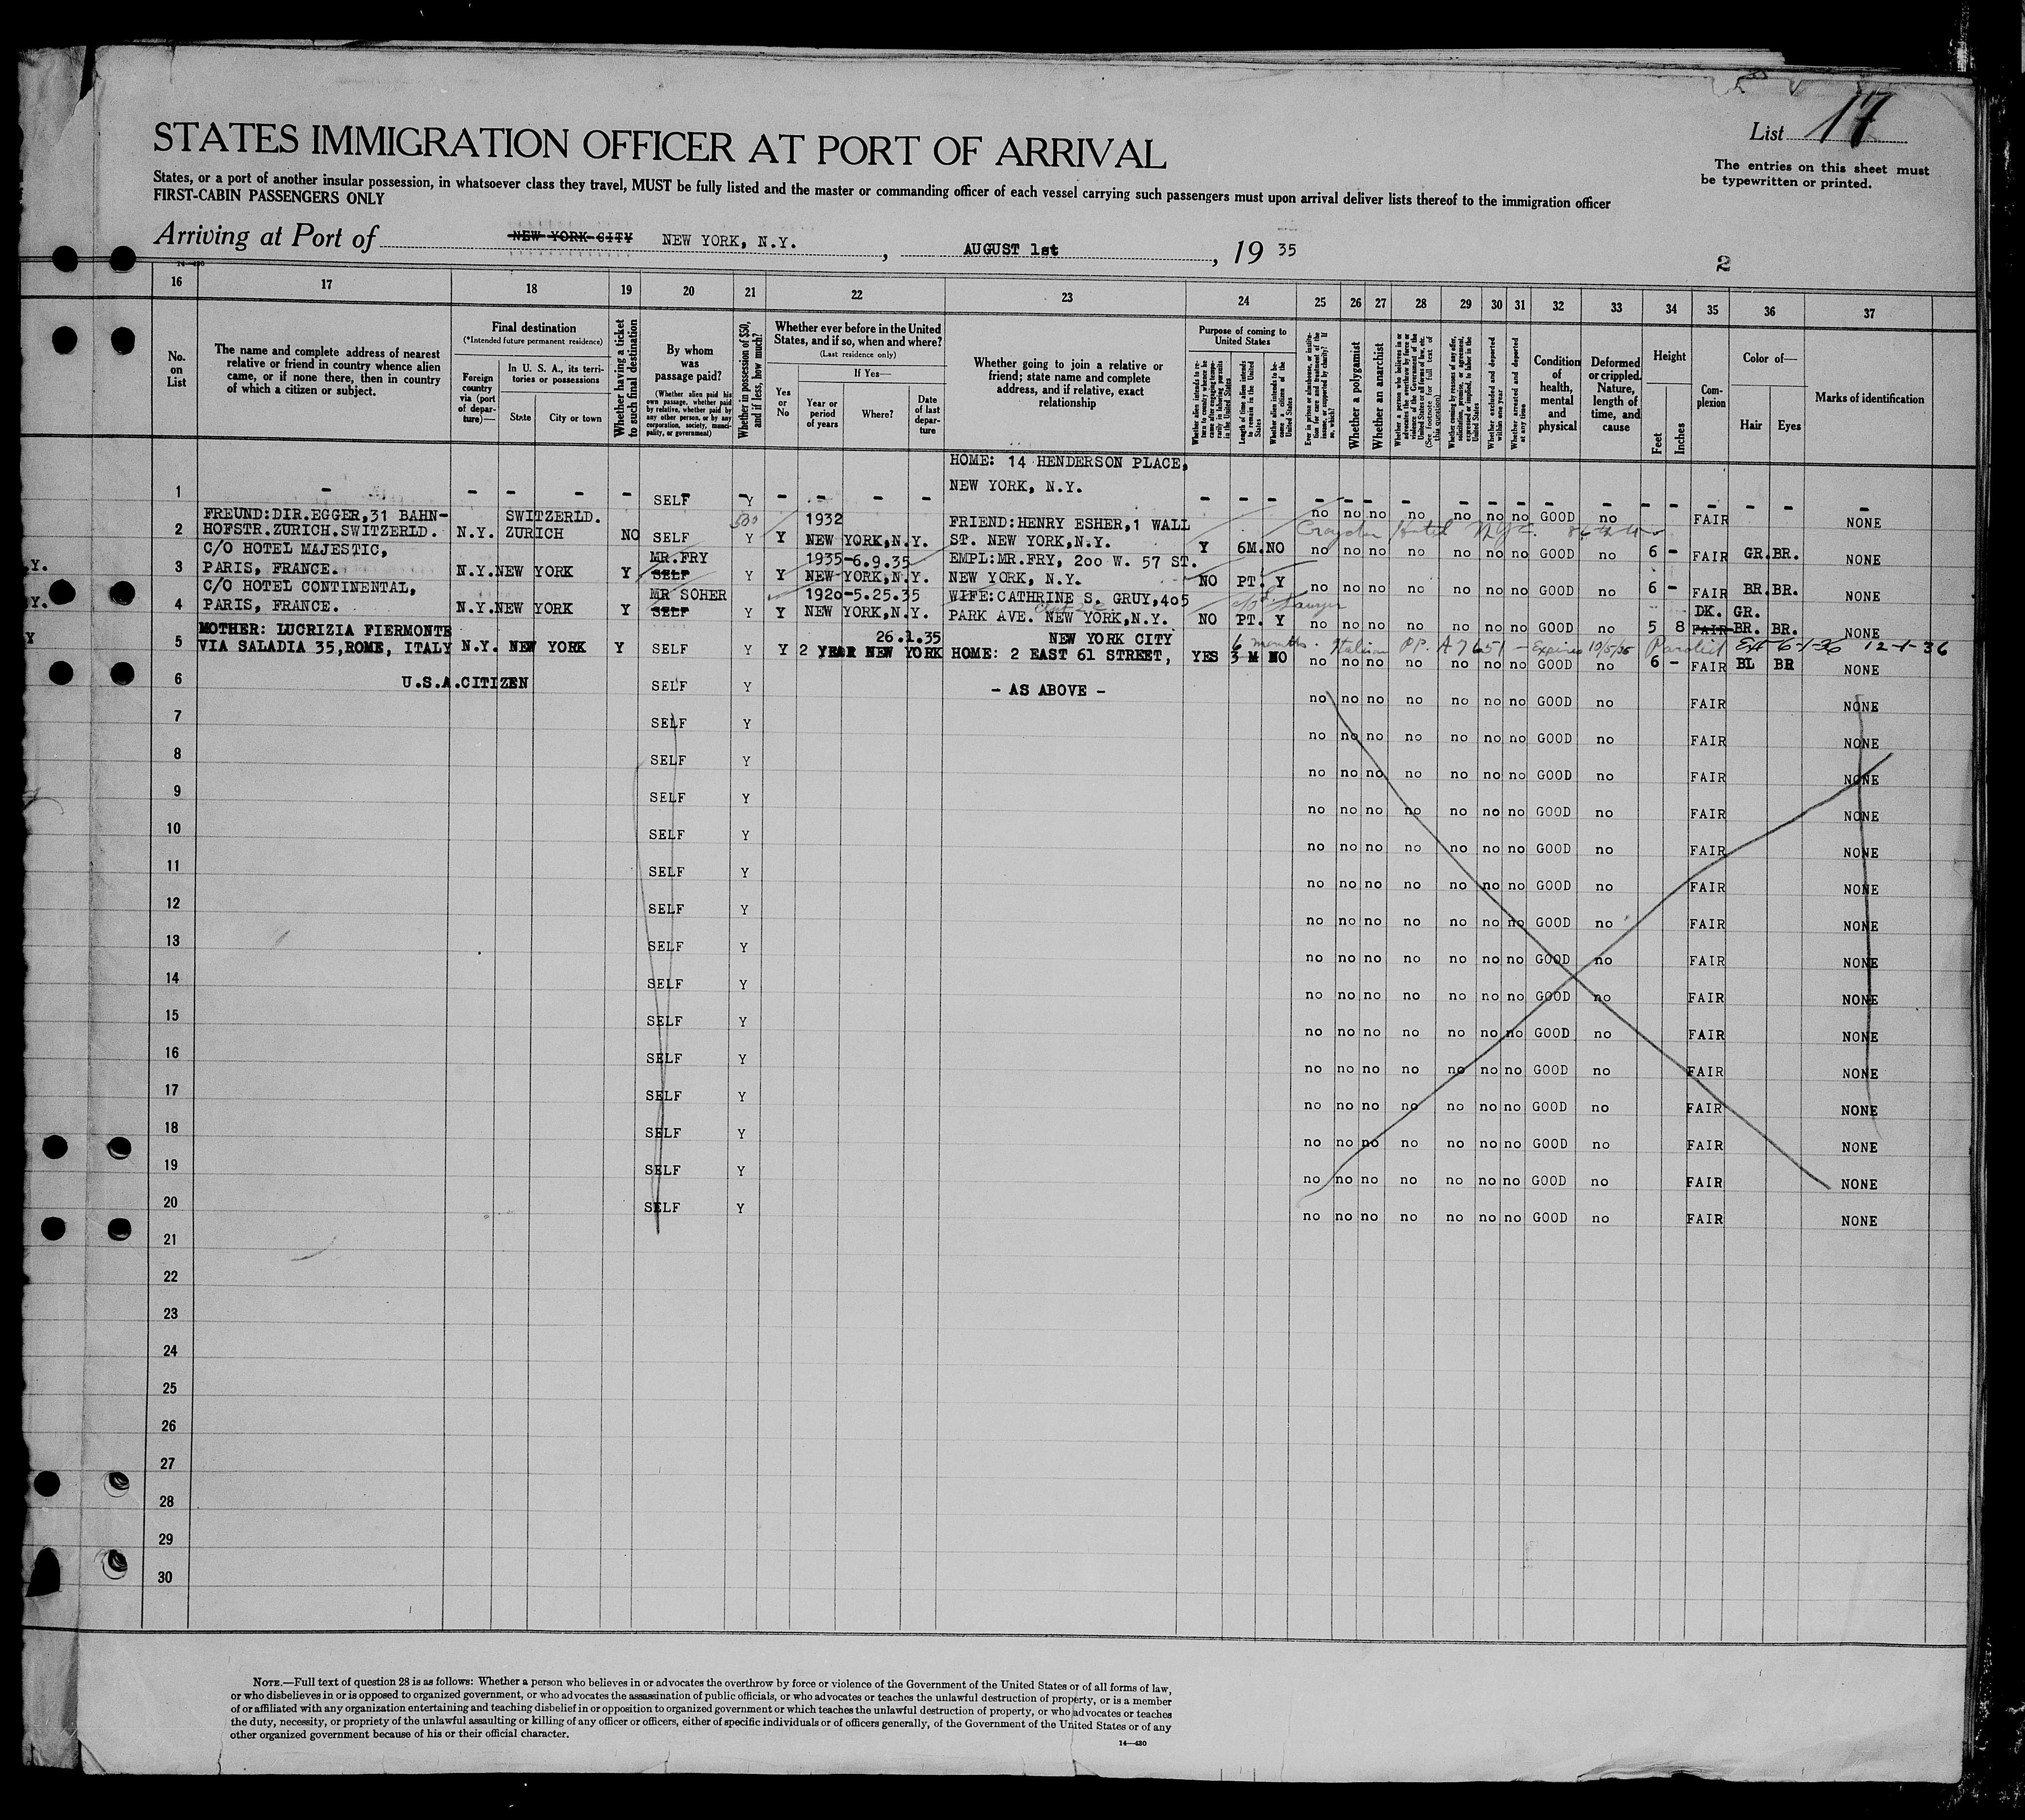 List 17
STATES IMMIGRATION OFFICER AT PORT OF ARRIVAL
The entries on this sheet must
be typewritten or printed.
States, or a port of another insular possession, in whatsoever class they travel, MUST be fully listed and the master or commanding officer of each vessel carrying such passengers must upon arrival deliver lists thereof to the immigration officer
FIRST-CABIN PASSENGERS ONLY
Arriving at Port of NEW YORK CITY NEW YORK, N.Y. , AUGUST 1st , 19 35
2
14-430
16 17 18 19 20 21 22 23 24 25 26 27 28 29 30 31 32 33 34 35 36 37
No. on List
The name and complete address of nearest
relative or friend in country whence alien
came, or if none there, then in country
of which a citizen or subject.
Final destination
(*Intended future permanent residence)
Foreign country via (port of departure)—
In U. S. A., its territories or possessions
State
City or town
Whether having a ticket to such final destination
By whom was passage paid?
(Whether alien paid his own passage, whether paid by relative, whether paid by any other person, or by any corporation, society, municipality, or government)
Whether in possession of $50, and if less, how much?
Whether ever before in the United
States, and if so, when and where?
(Last residence only)
Yes or No
If Yes—
Year or period of years
Where?
Date of last departure
Whether going to join a relative or
friend; state name and complete
address, and if relative, exact
relationship
Purpose of coming to United States
Length of time alien intends to remain in the United States
Whether alien intends to become a citizen of the United States
Whether a polygamist
Whether an anarchist
Whether excluded and deported within one year
Whether arrested and deported at any time
Condition of health, mental and physical
Deformed or crippled. Nature, length of time, and cause
Height
Feet
Inches
Complexion
Color of—
Hair
Eyes
Marks of identification
HOME: 14 HENDERSON PLACE,
NEW YORK, N.Y.
1 - - - - - SELF Y - - - - - - - - - - - - - - - - - - - - -
FREUND:DIR.EGGER,31 BAHN- SWITZERLD. 500 1932 FRIEND:HENRY ESHER,1 WALL no no no no no no no GOOD no FAIR NONE
2 HOFSTR.ZURICH.SWITZERLD. N.Y. ZURICH NO SELF Y Y NEW YORK,N.Y. ST. NEW YORK,N.Y. Y 6M. NO Croydon Hotel N.Y.C. 86th
C/O HOTEL MAJESTIC, MR.FRY 1935-6.9.35 EMPL:MR.FRY, 200 W. 57 ST. no no no no no no no GOOD no 6 - FAIR GR. BR. NONE
3 PARIS, FRANCE. N.Y. NEW YORK Y SELF Y Y NEW YORK,N.Y. NEW YORK, N.Y. NO PT. Y
C/O HOTEL CONTINENTAL, MR SOHER 1920-5.25.35 WIFE:CATHRINE S. GRUY,405 no no no no no no no GOOD no 6 - FAIR BR. BR. NONE
4 PARIS, FRANCE. N.Y. NEW YORK Y SELF Y Y NEW YORK,N.Y. PARK AVE. NEW YORK,N.Y. NO PT. Y DK. GR.
no no no no no no no GOOD no 5 8 FAIR BR. BR. NONE
MOTHER: LUCRIZIA FIERMONTE 26.1.35 NEW YORK CITY 6 months. Italian PP. A7651 - Expires 10/5/35 Ext 6-1-36 12-1-36
5 VIA SALADIA 35,ROME, ITALY N.Y. NEW YORK Y SELF Y Y 2 YEAR NEW YORK HOME: 2 EAST 61 STREET, YES 3 M NO no no no no no no no GOOD no 6 - FAIR BL BR NONE
6 U.S.A.CITIZEN SELF Y - AS ABOVE - no no no no no no no GOOD no FAIR NONE
7 SELF Y no no no no no no no GOOD no FAIR NONE
8 SELF Y no no no no no no no GOOD no FAIR NONE
9 SELF Y no no no no no no no GOOD no FAIR NONE
10 SELF Y no no no no no no no GOOD no FAIR NONE
11 SELF Y no no no no no no no GOOD no FAIR NONE
12 SELF Y no no no no no no no GOOD no FAIR NONE
13 SELF Y no no no no no no no GOOD no FAIR NONE
14 SELF Y no no no no no no no GOOD no FAIR NONE
15 SELF Y no no no no no no no GOOD no FAIR NONE
16 SELF Y no no no no no no no GOOD no FAIR NONE
17 SELF Y no no no no no no no GOOD no FAIR NONE
18 SELF Y no no no no no no no GOOD no FAIR NONE
19 SELF Y no no no no no no no GOOD no FAIR NONE
20 SELF Y no no no no no no no GOOD no FAIR NONE
21
22
23
24
25
26
27
28
29
30
NOTE.—Full text of question 28 is as follows: Whether a person who believes in or advocates the overthrow by force or violence of the Government of the United States or of all forms of law,
or who disbelieves in or is opposed to organized government, or who advocates the assassination of public officials, or who advocates or teaches the unlawful destruction of property, or is a member
of or affiliated with any organization entertaining and teaching disbelief in or opposition to organized government or which teaches the unlawful destruction of property, or who advocates or teaches
the duty, necessity, or propriety of the unlawful assaulting or killing of any officer or officers, either of specific individuals or of officers generally, of the Government of the United States or of any
other organized government because of his or their official character.
14-430